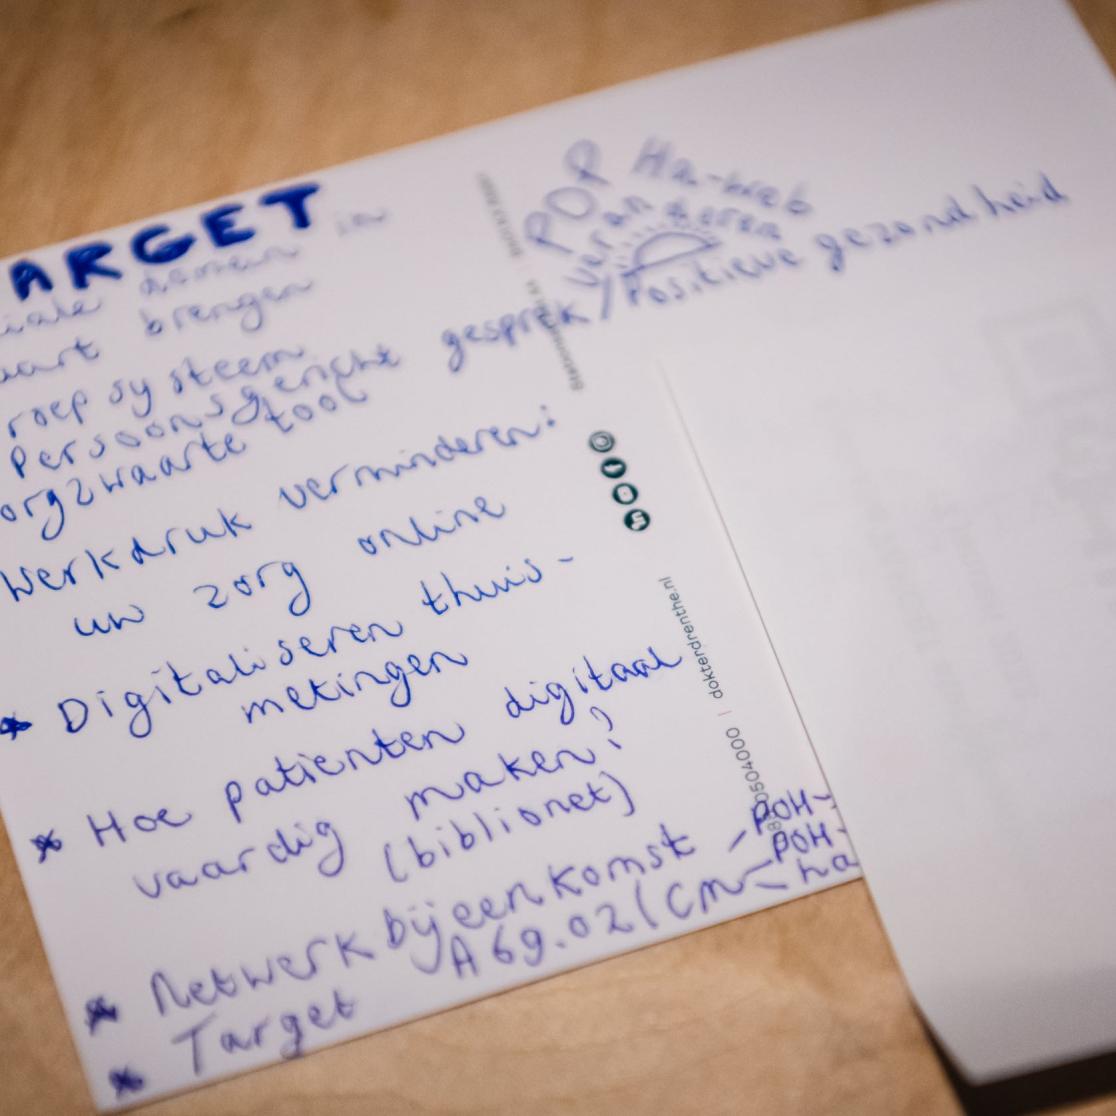 ARGET
iale domein in
aart brengen
roep systeem
Persoonsgericht gesprek / Positieve gezondheid
orgzwaarte tool
POP
Ha-web
veran deren
werkdruk verminderen:
uw zorg online
* Digitaliseren thuis-
metingen
* Hoe patienten digitaal
vaardig maken?
(biblionet)
* Netwerk bijeenkomst
A69.02 (CM
POH-
POH-
ha
* Target
0504000 | dokterdrenthe.nl